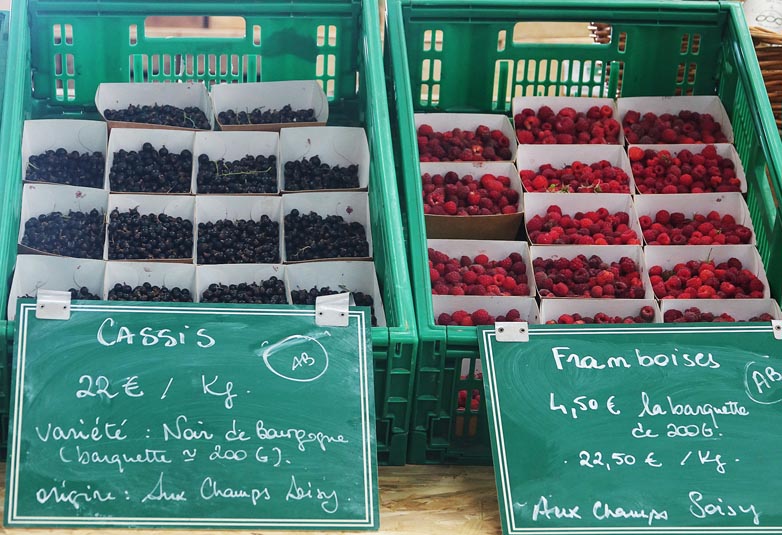 Cassis
AB
22 € / Kg.
variété : Noir de Bourgogne
(barquette ≃ 200 G).
origine : Aux Champs Soisy.
Framboises
AB
4,50 € la barquette
de 200G.
22,50 € / Kg.
Aux Champs Soisy